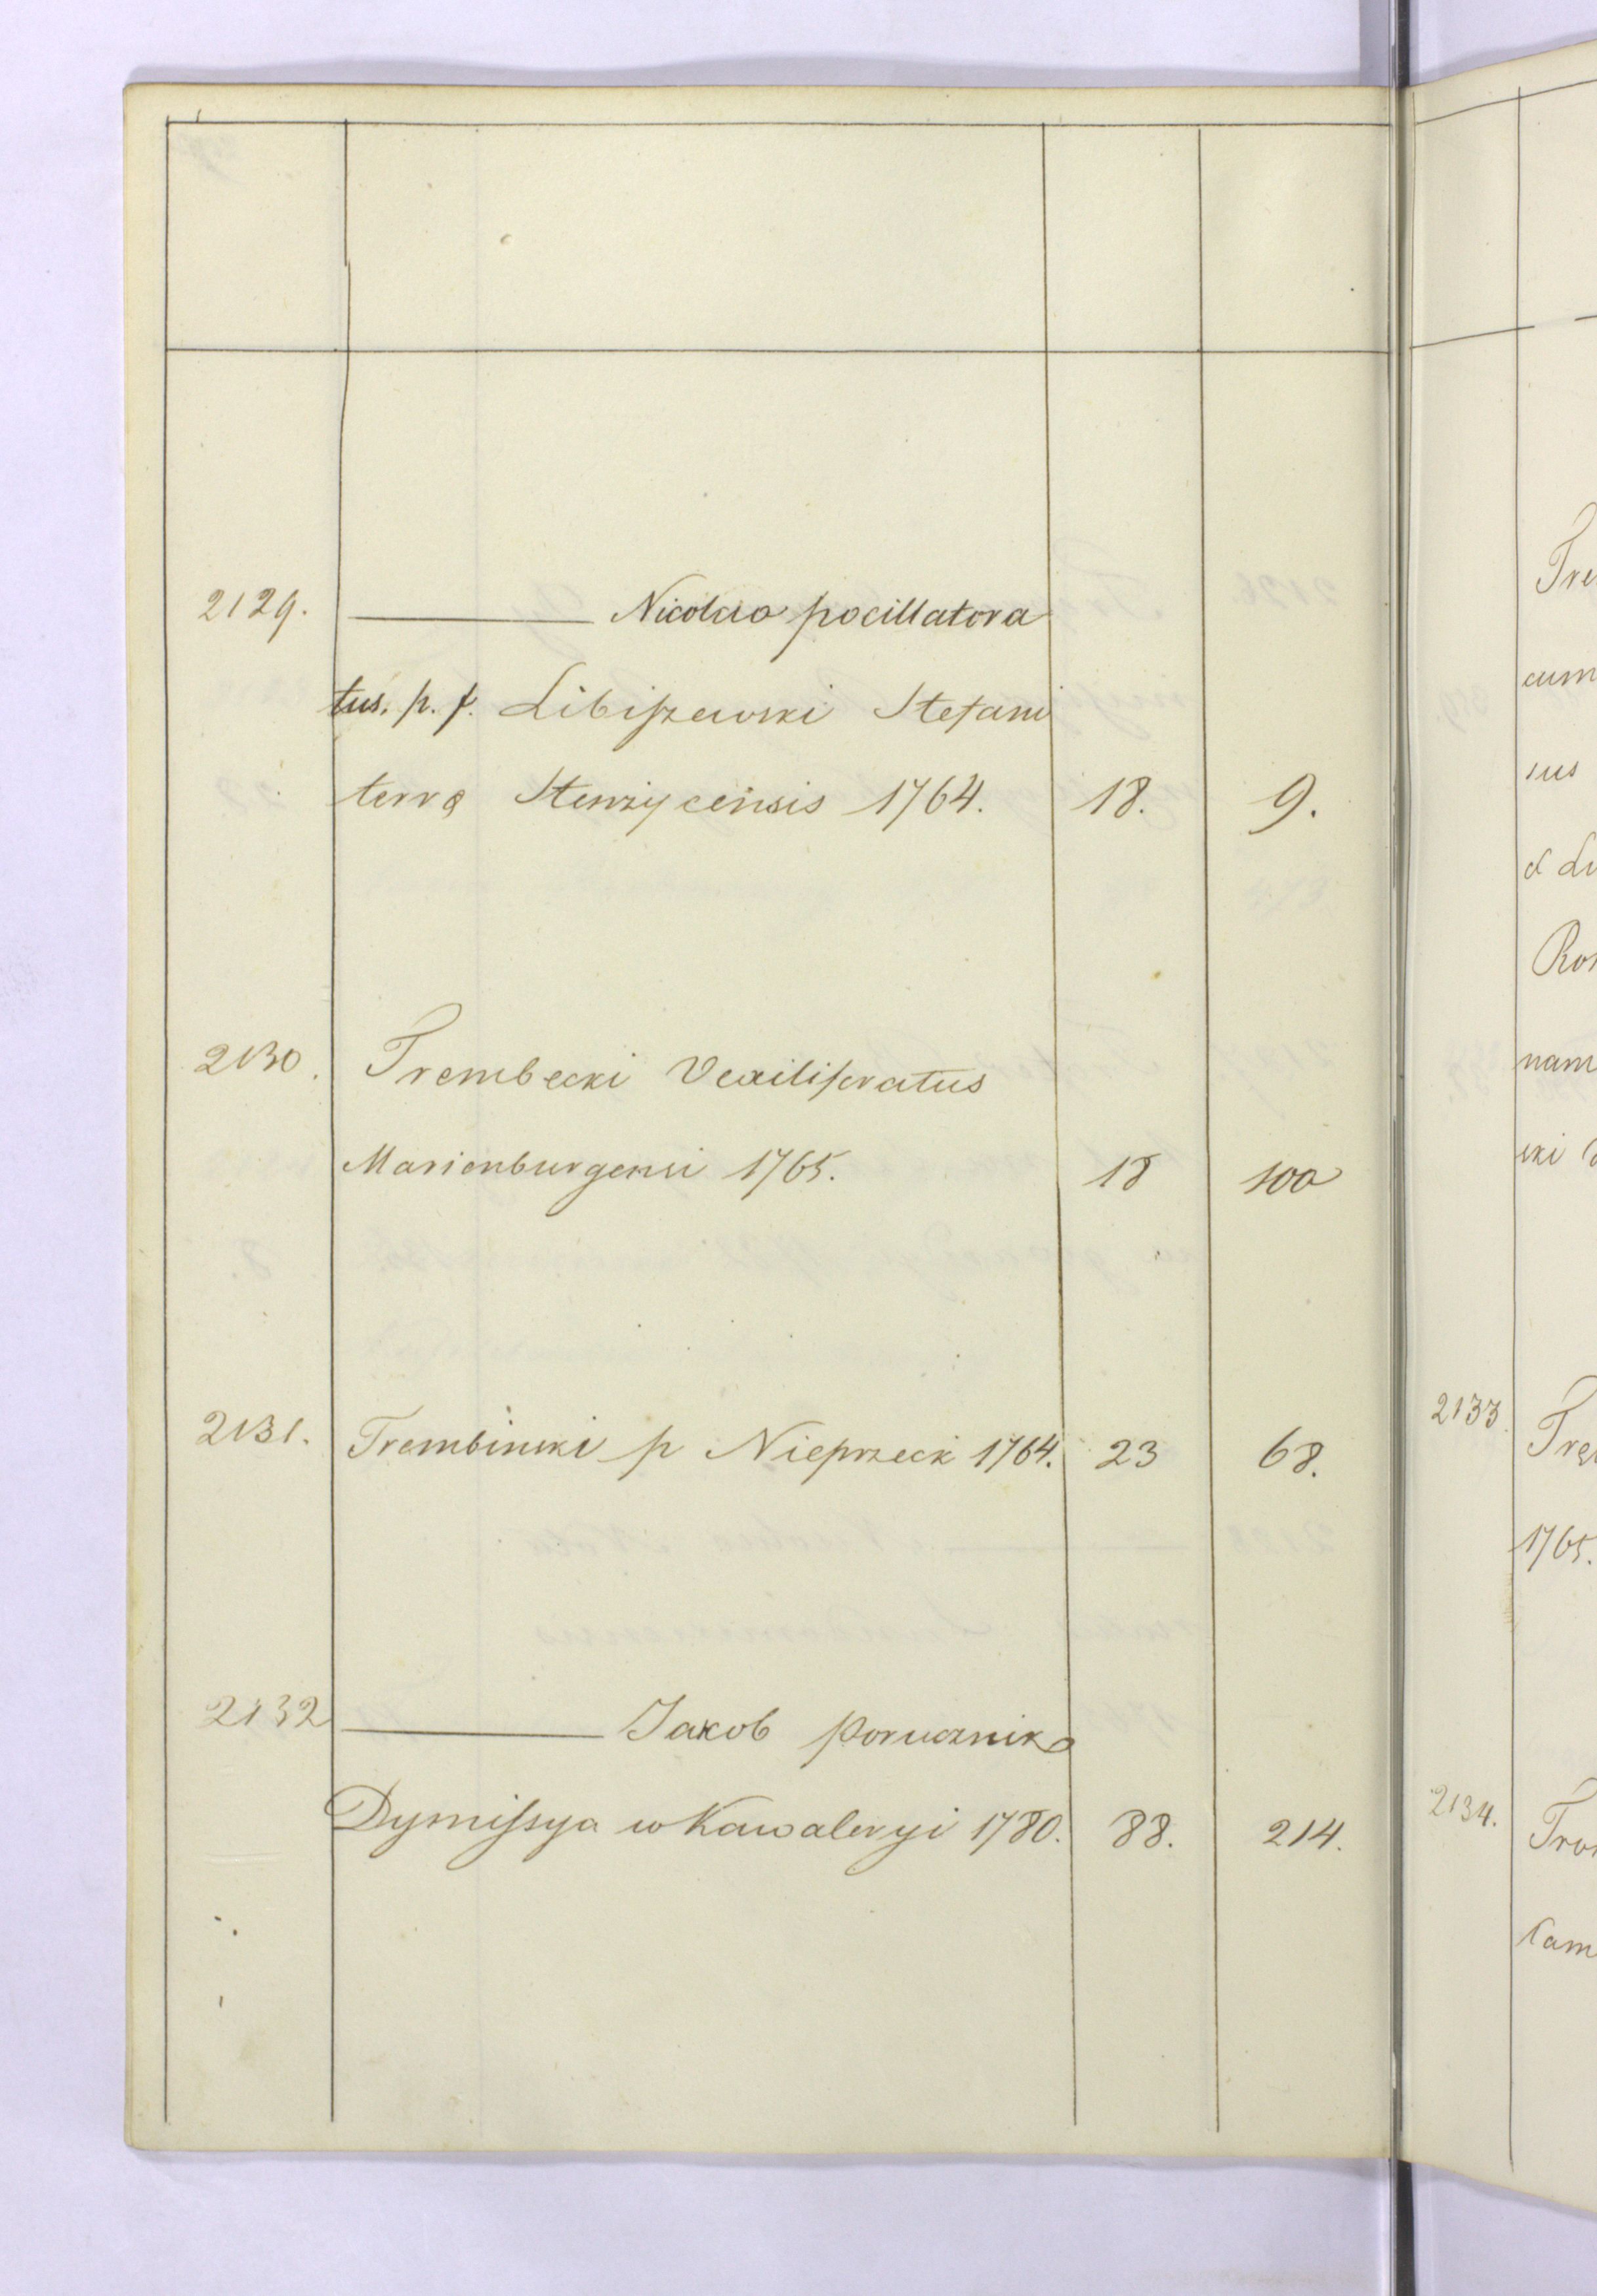 2129. ——— Nicolao pocillatora
tus. p. f. Libiszewski Stefani
terrę Stenzycensis 1764. 18. 9.
2130. Trembecki Vexiliferatus
Marienburgensi 1765. 18 100
2131. Trembinski p Nieprzeck 1764. 23 68.
2132 ——— Jakob porucznik
Dymissya w Kawaleryi 1780. 88. 214.
Tre
cum
sus
d Li
Ro
nam
ski
2133 Trę
1765.
2134. Tro
Kam